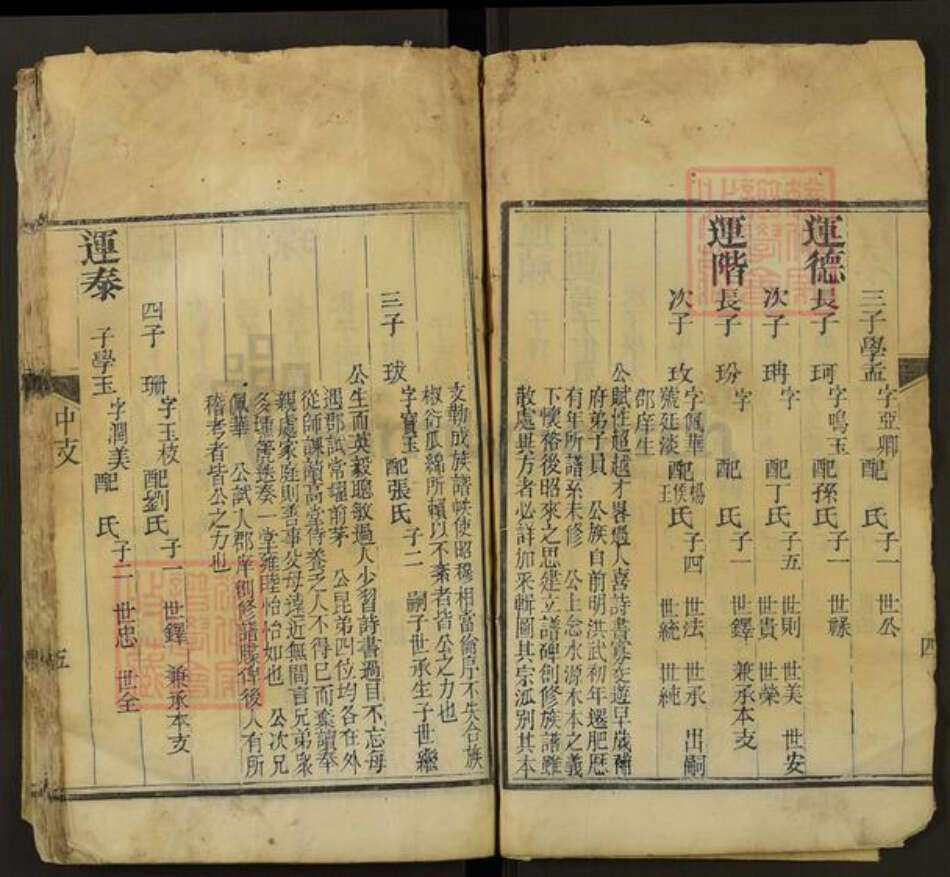 三子學孟 字亞卿 配 氏 子一 世公
運德長子 珂 字鳴玉 配孫氏 子一 世祿
次子 珃 字 配丁氏 子五 世則 世美 世安 世貴 世榮
運階長子 玢 字 配 氏 子一 世鐸 兼承本支
次子 玫 字佩華 號延淡 配楊侯王氏 子四 世法 世承 出嗣 世統 世純
郡庠生
公賦性超越才畧過人喜詩書寡交遊早歲補
府弟子員 公族自前明洪武初年遷肥歷
有年所譜系未修 公上念水源木本之義
下懷裕後昭來之思建立譜碑創修族譜雖
散處異方者必詳加采輯圖其宗派別其本
支勒成族譜帙使昭穆相當倫序不失合族
椒衍瓜綿所賴以不紊者皆公之力也
三子 珬 字寶玉 配張氏 子二 嗣子世承生子世繼
公生而英毅聰敏過人少習詩書過目不忘母
遇郡試常擢前茅 公昆弟四位均各在外
從師課蘭高堂侍養乏人不得已而棄讀奉
親處家庭則善事父母遠近無間言兄弟眾
多壎箎迭奏一堂雍睦怡怡如也 公次兄
佩華 公試入郡庠創修譜牒俾後人有所
稽考者皆公之力也
四子 珊 字玉枝 配劉氏 子一 世鐸 兼承本支
運泰 子學玉 字潤美 配 氏 子二 世忠 世全
中支
五
四